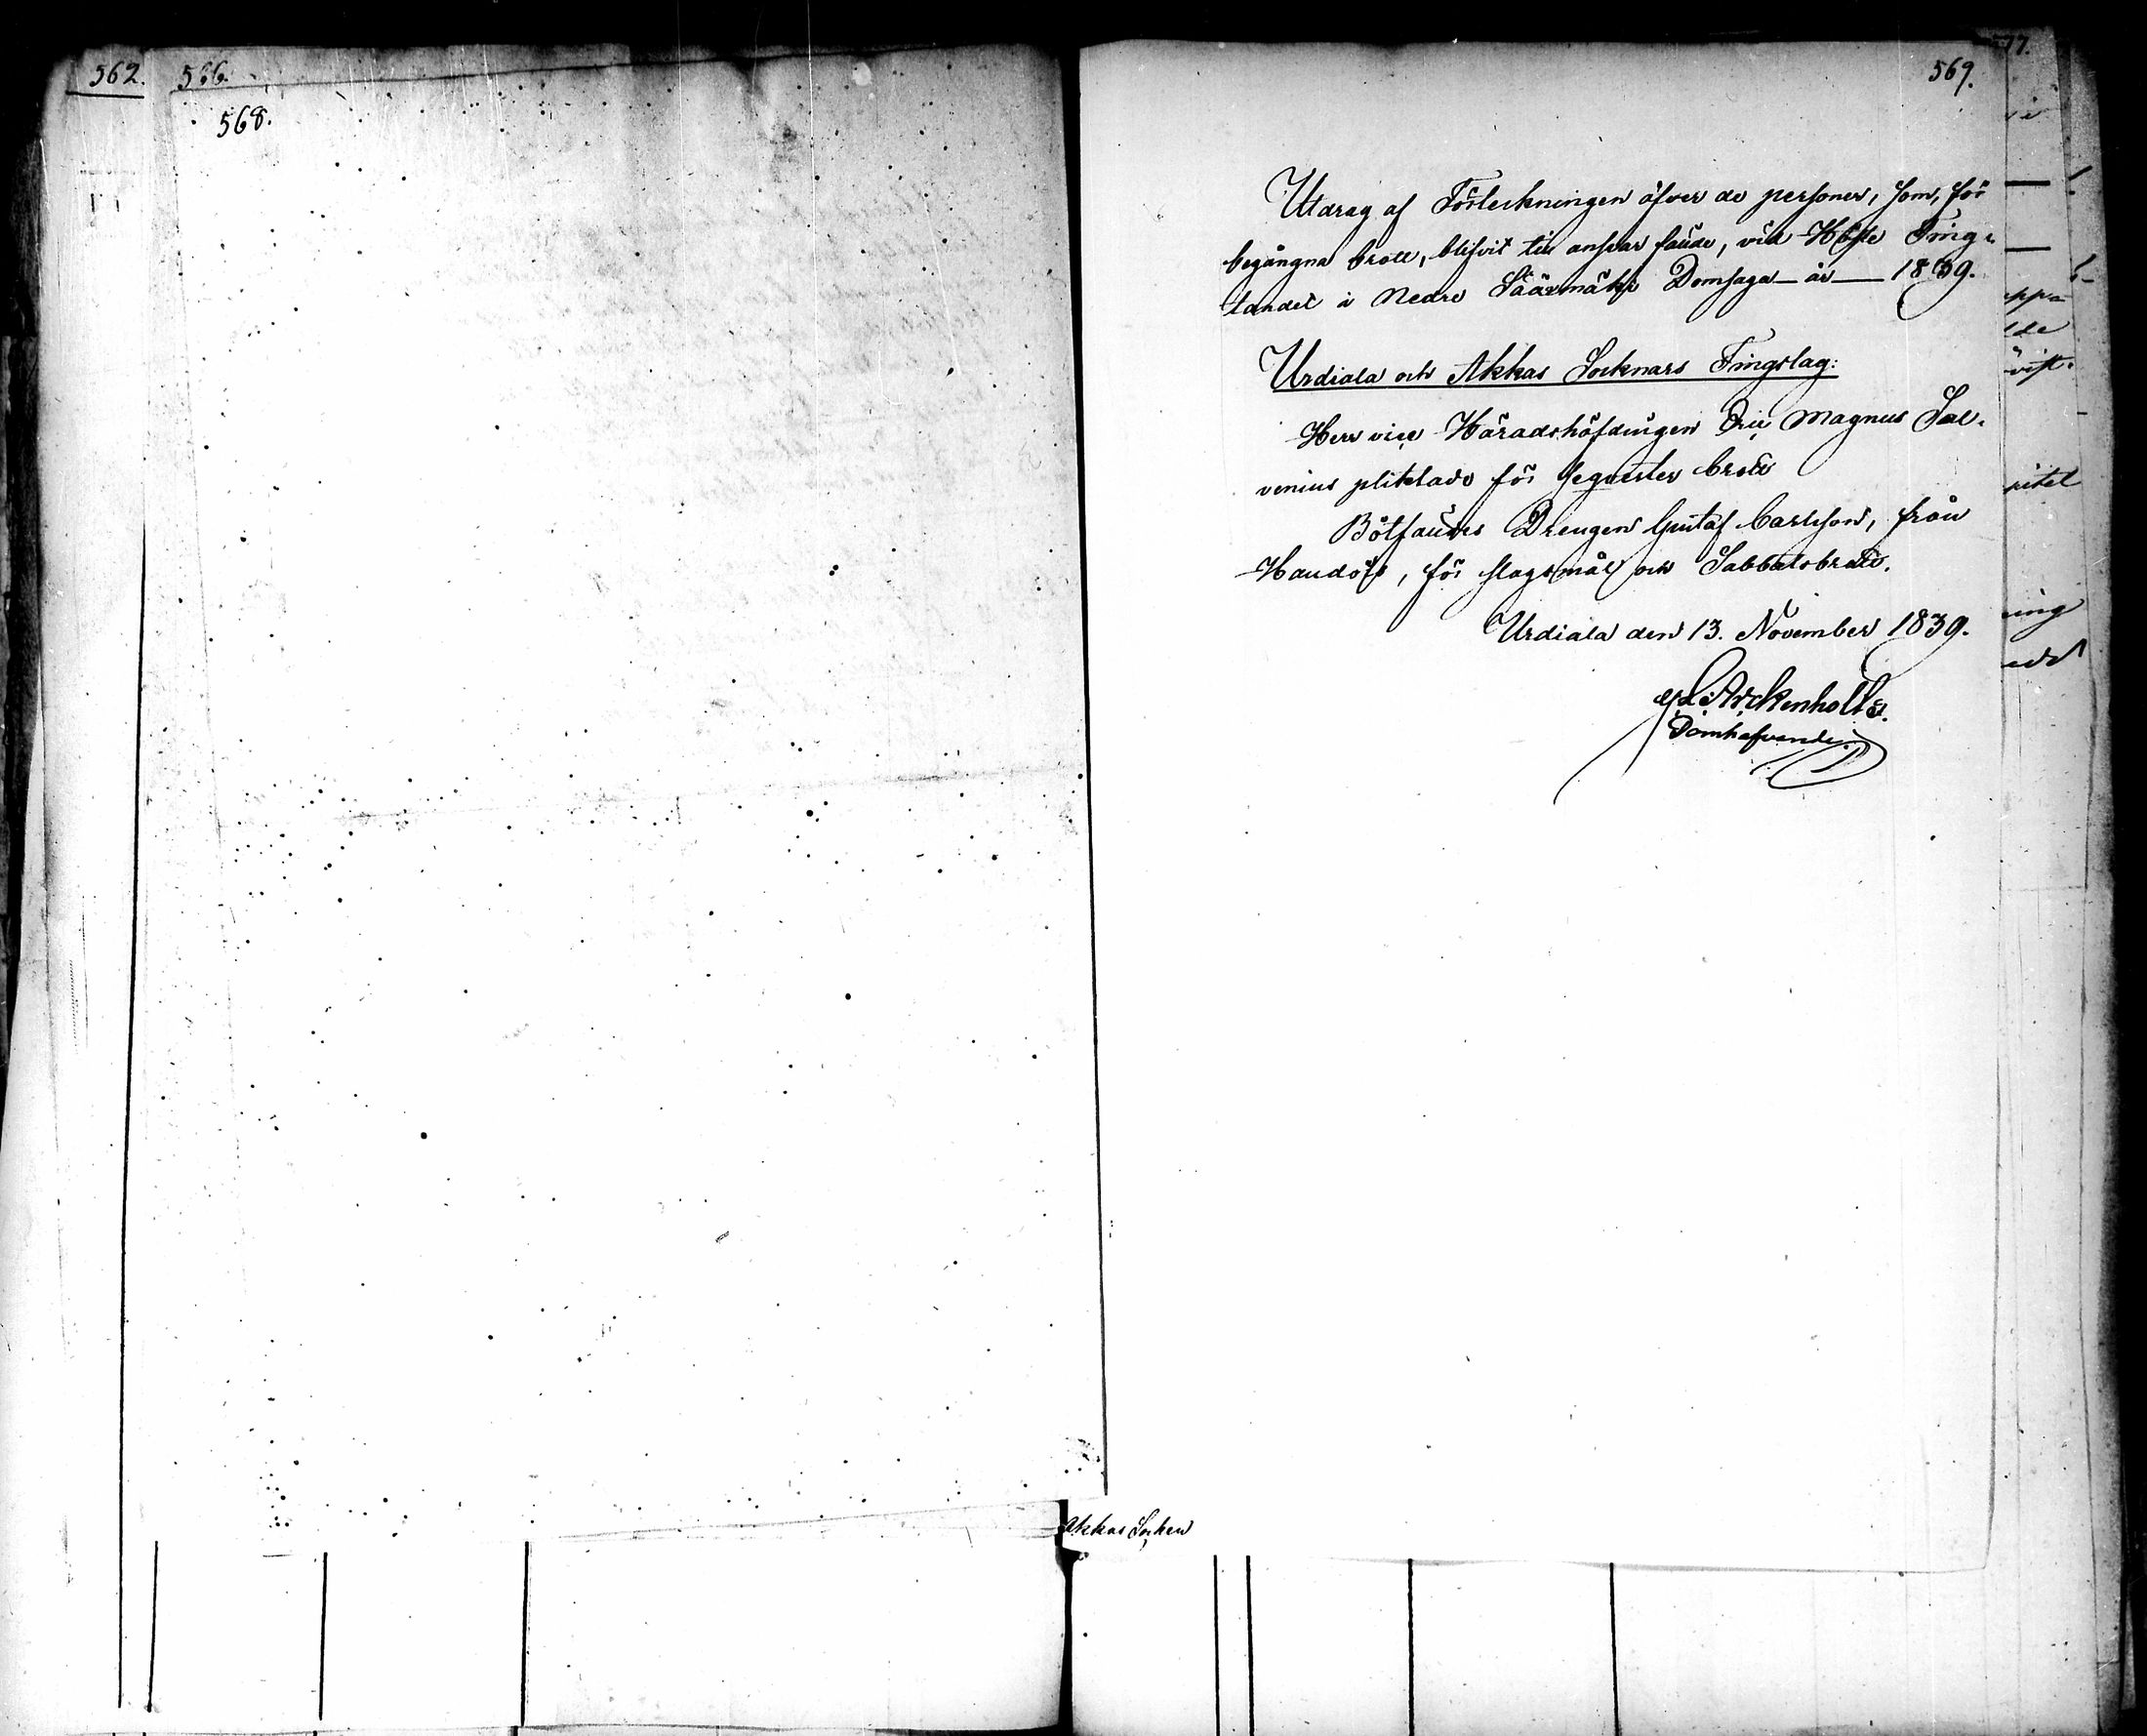 562. 566.
568.
569.
Utdrag af Förteckningen öfver de personer, som, för
begångna brott, blifvit till ansvar fände, vid Höste Ting-
tandet i Nedre Säáxmäki Domsaga år 1839.
Urdiala och Akkas Socknars Tingslag:
Herr vice Häradshöfdingen Eric Magnus Sal-
venius pliktade för sequester brott
Bötfäldes Drengen Gustaf Carlsson, från
Handöis, för slagsmål och Sabbatsbrott.
Urdiala den 13. November 1839.
Arckenholtz.
Domhafvande.
Akkas Socken
77.